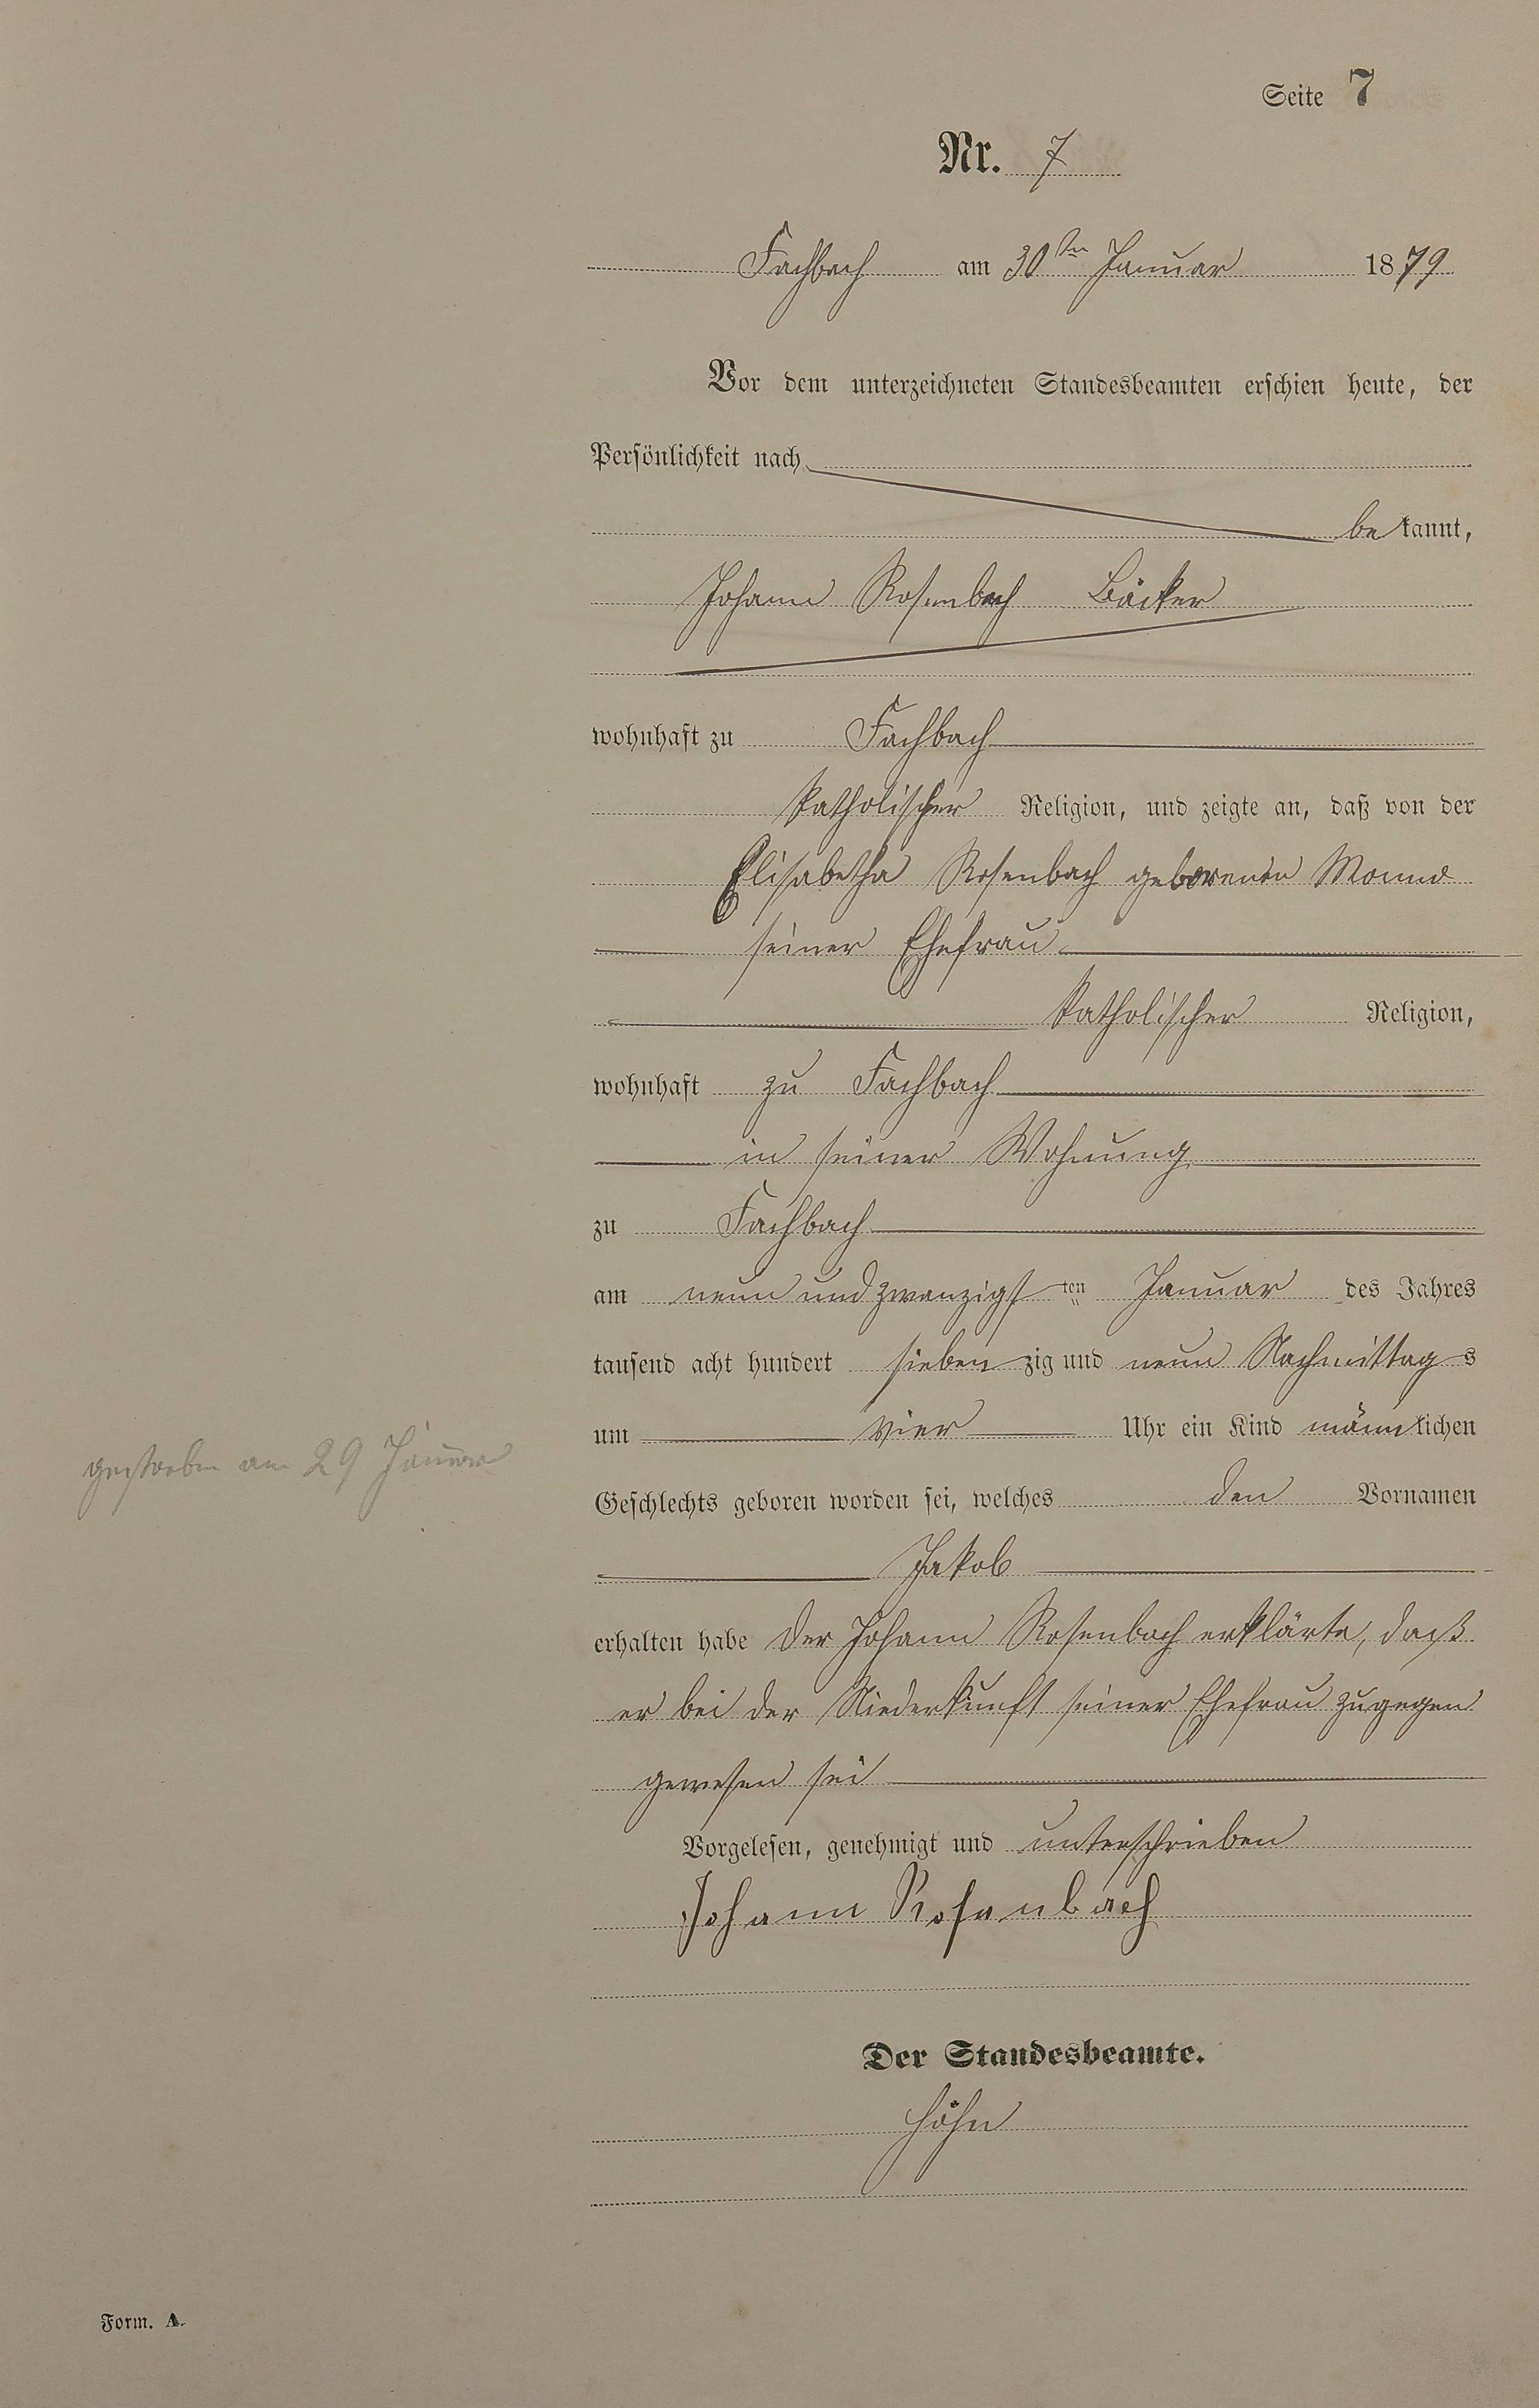 Seite 7
Nr. 7
Fachbach am 30ten Januar 1879
Vor dem unterzeichneten Standesbeamten erschien heute, der
Persönlichkeit nach
be kannt,
Johann Rosenbach Bäcker
wohnhaft zu Fachbach
katholischer Religion, und zeigte an, daß von der
Elisabetha Rosenbach geborenen
seiner Ehefrau
katholischer Religion,
wohnhaft zu Fachbach
in seiner Wohnung
zu Fachbach
am neun und zwanzigst ten Januar des Jahres
tausend acht hundert sieben zig und neun Nachmittag s
um vier Uhr ein Kind männlichen
gestorben am 29 Januar
Geschlechts geboren worden sei, welches den Vornamen
Jakob
erhalten habe Der Johann Rosenbach erklärte, daß
er bei der Niederkunft seiner Ehefrau zugegen
gewesen sei
Vorgelesen, genehmigt und unterschrieben
Johann Rosenbach
Der Standesbeamte.
Höhn
Form. A.